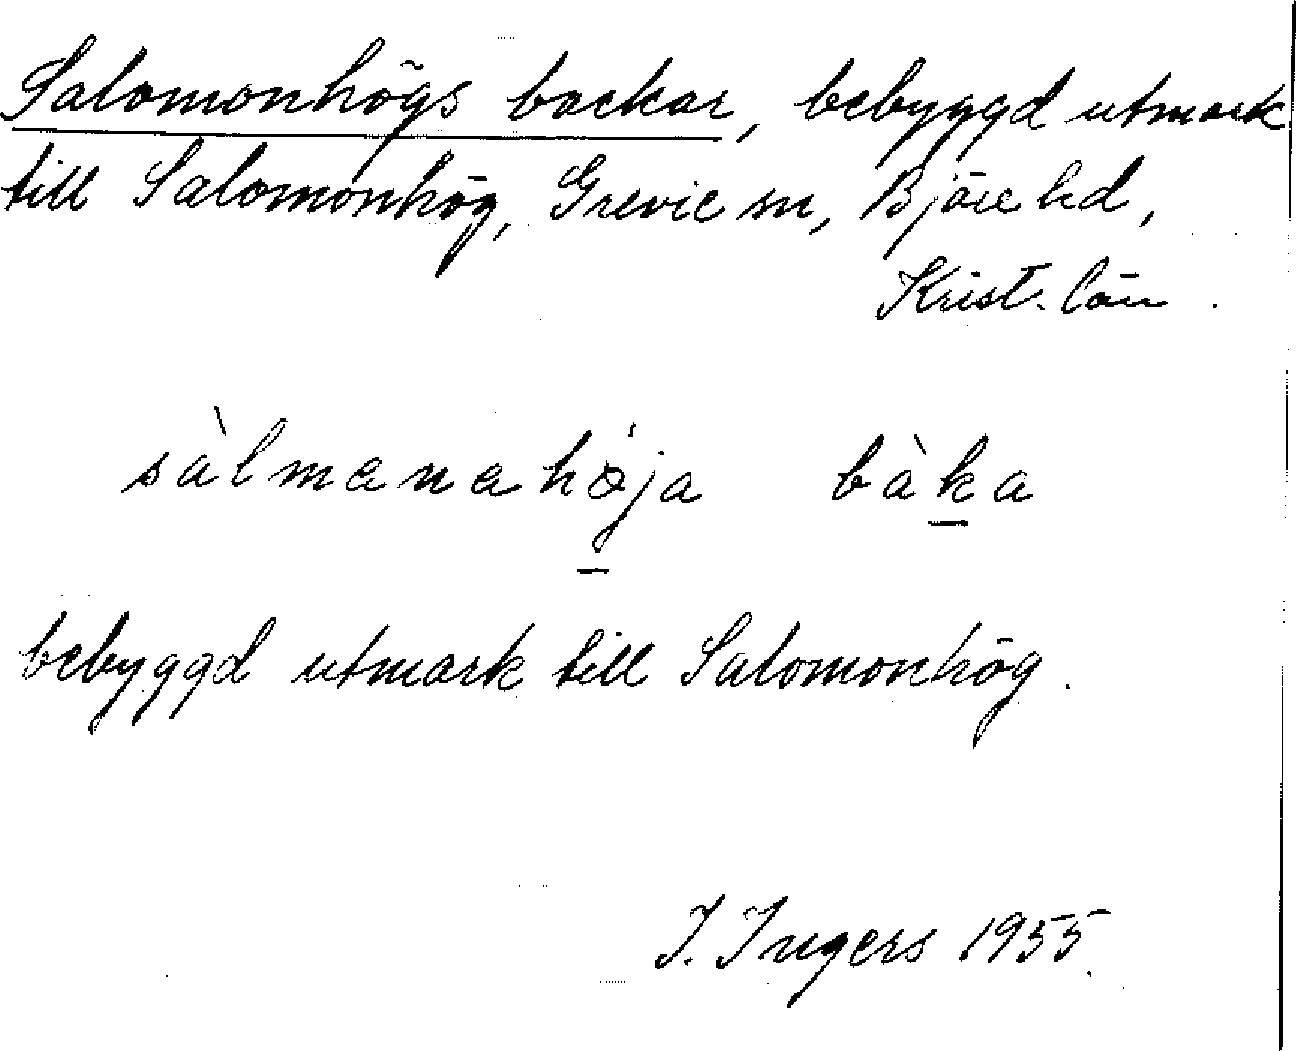 Salomonhögs backar, bebyggd utmark
till Salomonhög, Grevie sn, Bjäre hd,
Krist. län.
sàlmanahǿja bàka
bebyggd utmark till Salomonhög.
I. Ingers 1955.